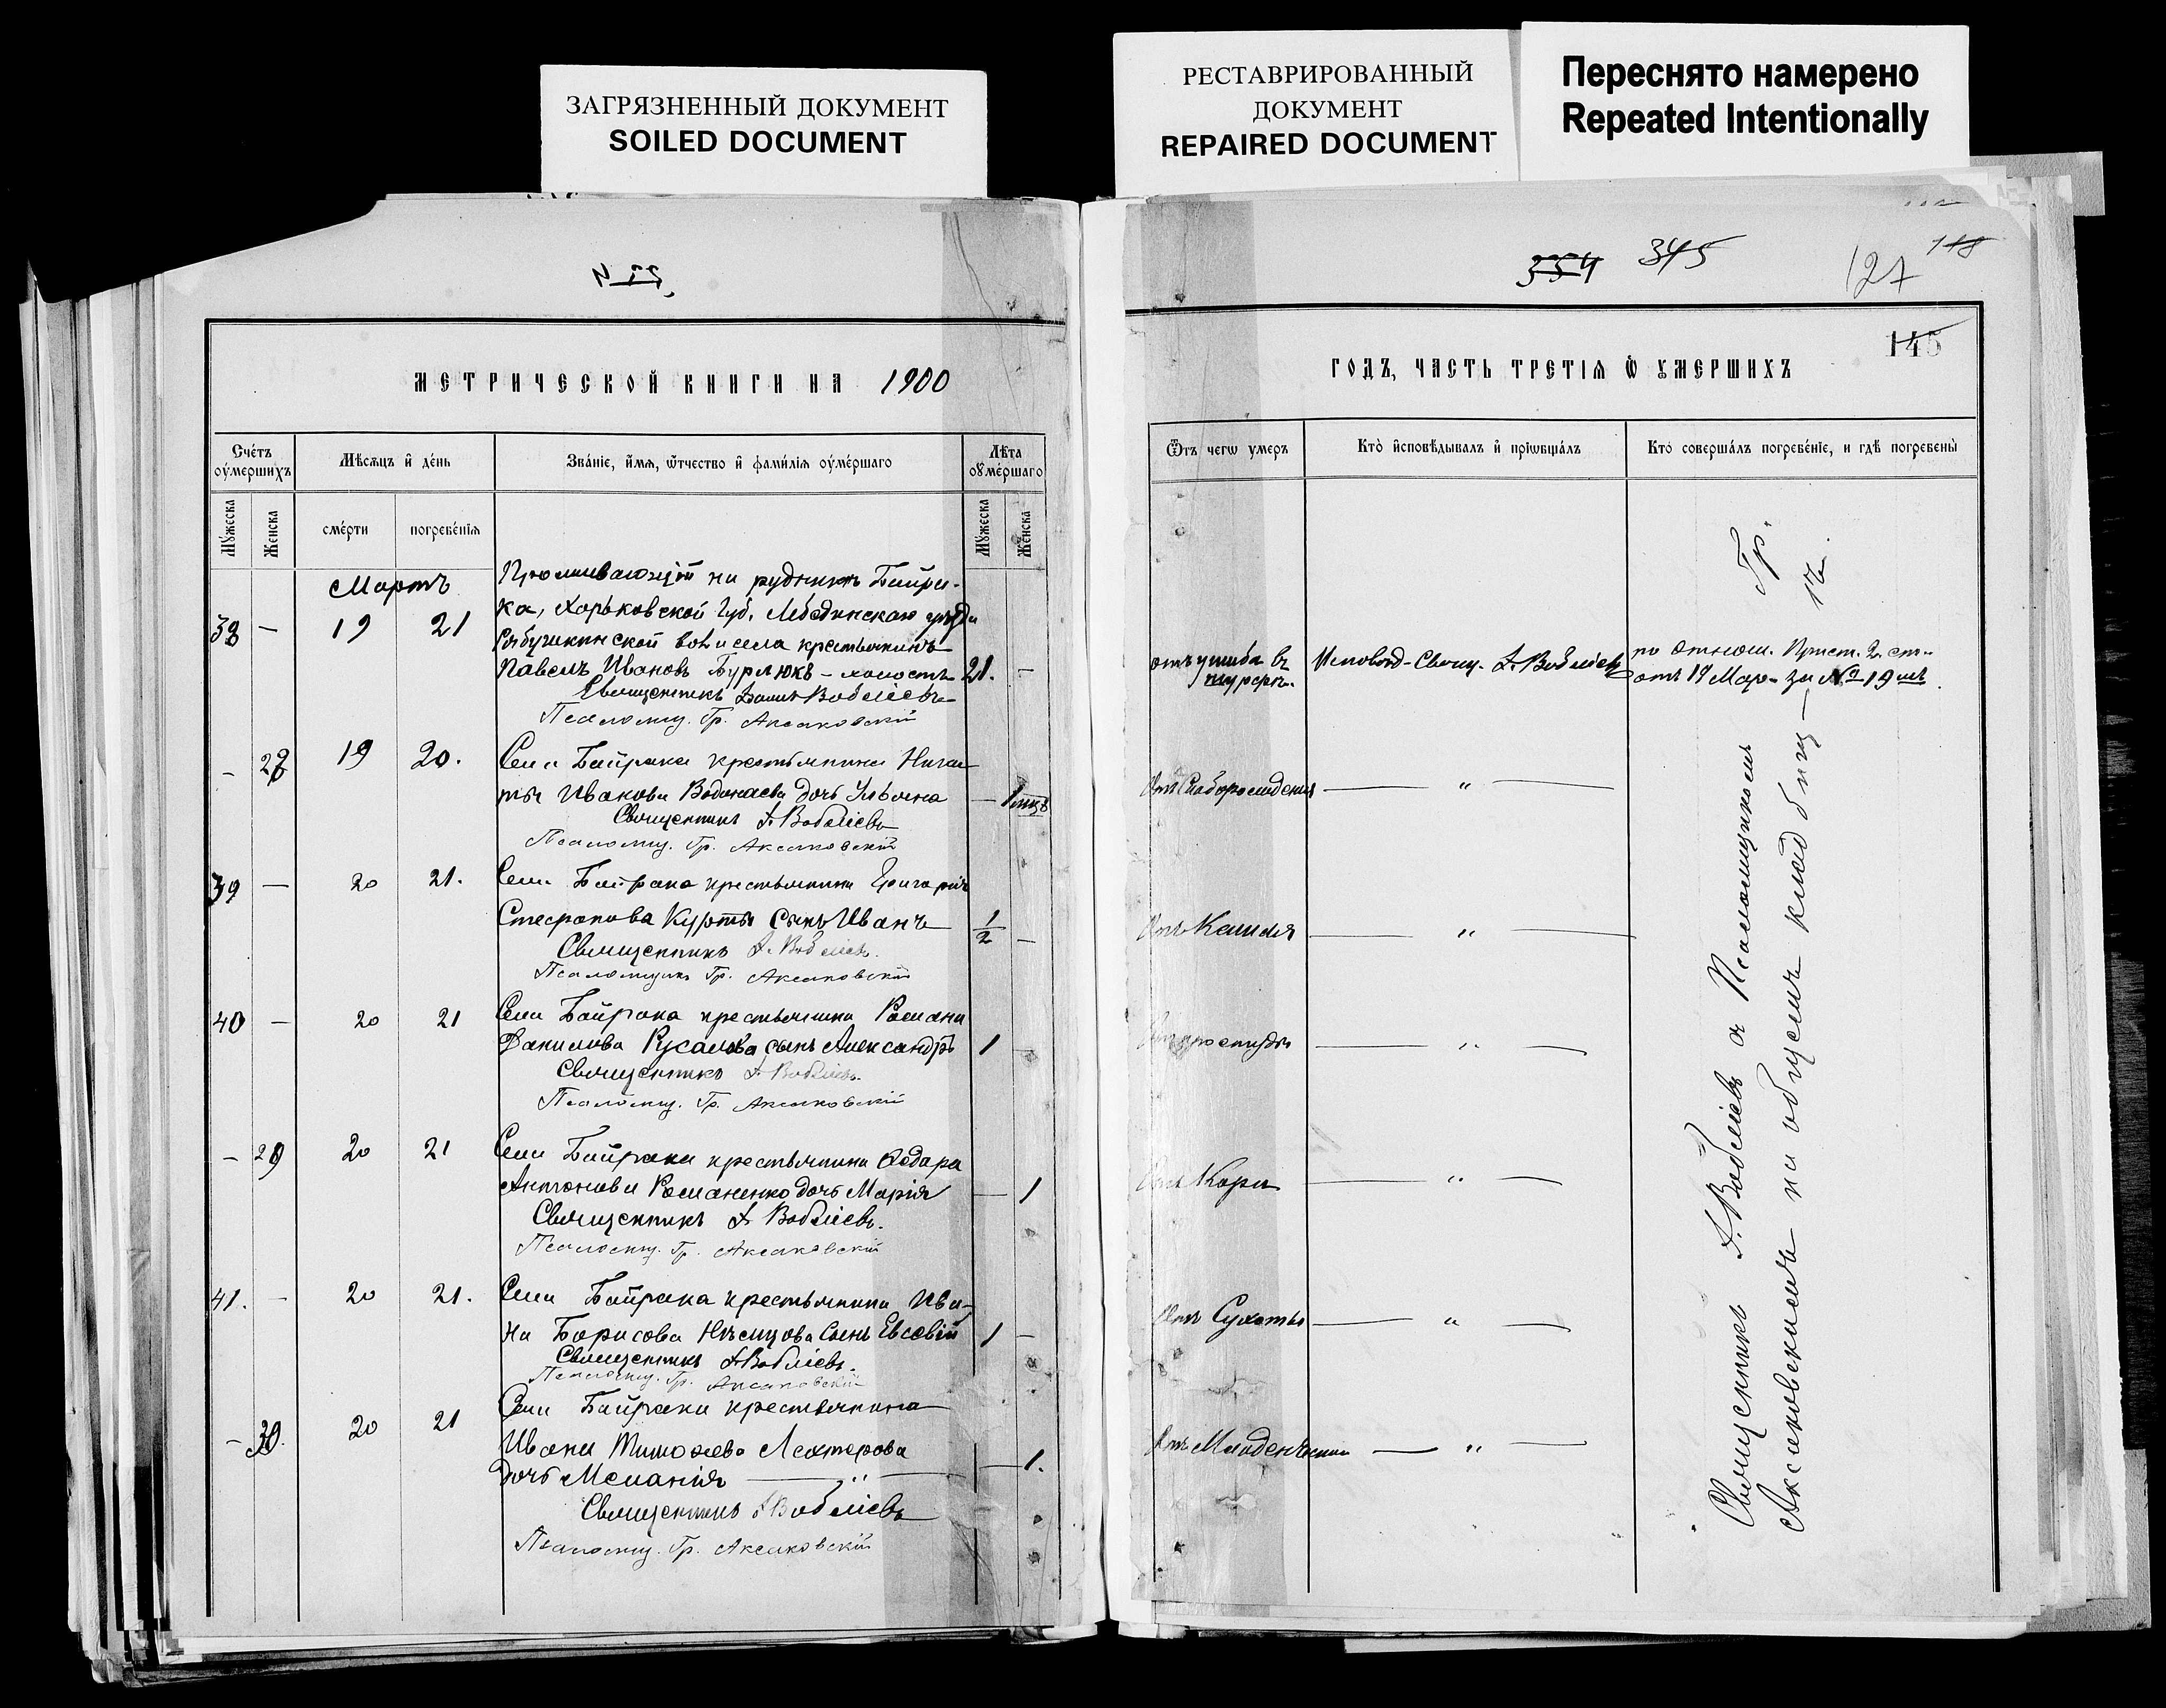 ЗАГРЯЗНЕННЫЙ ДОКУМЕНТ
SOILED DOCUMENT
РЕСТАВРИРОВАННЫЙ
ДОКУМЕНТ
REPAIRED DOCUMENT
Переснято намерено
Repeated Intentionally
354 345
127 118
145
МЕТРИЧЕСКОЙ КНИГИ НА 1900
ГОДЪ, ЧАСТЬ ТРЕТІЯ Ѽ УМЕРШИХЪ
Счéтъ оумершихъ
Мѣсяцъ и дéнь
Звáніе, имя, ѿтчество и фамилія оумéршаго
Лѣта оумéршаго
Мужеска
Женска
смéрти
погребéнія
Мужеска
Женска
Ѿтъ чегѡ умеръ
Ктò исповѣдывалъ и пріѡбщáлъ
Ктò совершáлъ погребéніе, и гдѣ погребены
Мартъ
Проживающій на рудникѣ Байра-
38 — 19 21 ка, Харьковской губ. Лебединскаго уѣзда
вол и села крестьянинъ
Павелъ Ивановъ Бурлюкъ – холостъ 21. —
Священникъ
Псаломщ. Гр. Аксаковскій
отъ ушиба въ
шурфѣ.
Исповѣд- Свящ.
по отнош. Прист. 2 ст-
отъ 19 Мар- за №
— 19 20. Села Байрака крестьянина
Иванова Водолаева дочь
— 1 мцъ
Священникъ
Псаломщ. Гр. Аксаковскій
Отъ Слаборожденія — " —
39 — 20 21. Села Байрака крестьянина Григорія
Стефанова Курты сынъ Иванъ 1/2 —
Священникъ
Псаломщикъ Гр. Аксаковскій
Отъ Кашля — " —
40 — 20 21 Села Байрака крестьянина Романа
Данилова Русалова сынъ Александръ 1 —
Священникъ
Псаломщ. Гр. Аксаковскій
Отъ простуды — " —
— 29 20 21 Села Байрака крестьянина Федора
Антонова Романенко дочь Марія — 1
Священникъ
Псаломщ. Гр. Аксаковскій
Отъ Кори — " —
41. — 20 21. Села Байрака крестьянина Ива-
на Борисова Нѣмцова Сынъ Евсевій 1 —
Священникъ
Псаломщ. Гр. Аксаковскій
Отъ Сухоты — " —
— 30. 20 21 Села Байрака крестьянина
Ивана Тимофеева Лехтерова
дочь Меланія — " — 1.
Священникъ
Псаломщ. Гр. Аксаковскій
Отъ Младенческой — " —
Священникъ съ Псаломщикомъ Гр.
Аксаковскимъ на общемъ кладбищѣ